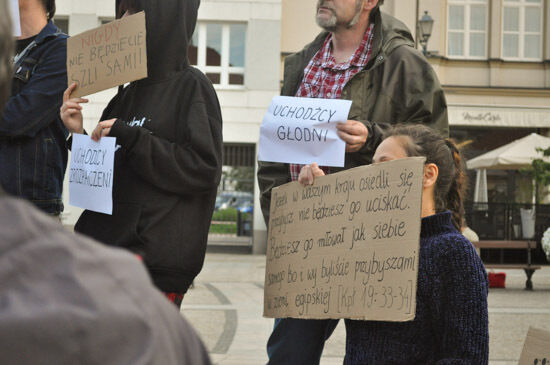 NIGDY
NIE BĘDZIECIE
SZLI SAMI!
UCHODŹCY
UCHODŹCY
GŁODNI
Jeżeli w waszym kraju osiedli się
przybysz nie będziesz go uciskać.
Będziesz go miłował jak siebie
samego bo i wy byliście przybyszami
w ziemi egipskiej [Kpł 19:33-34]